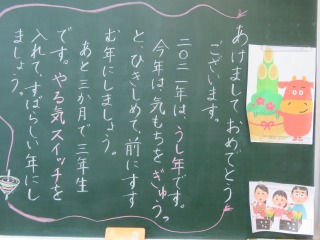 あけまして おめでとう
ございます。
二〇二一年は、うし年です。
今年は、気もちをぎゅうっ
と、ひきしめて、前にすす
む年にしましょう。
あと三か月で三年生
です。やる気スイッチを
入れて、すばらしい年にし
ましょう。